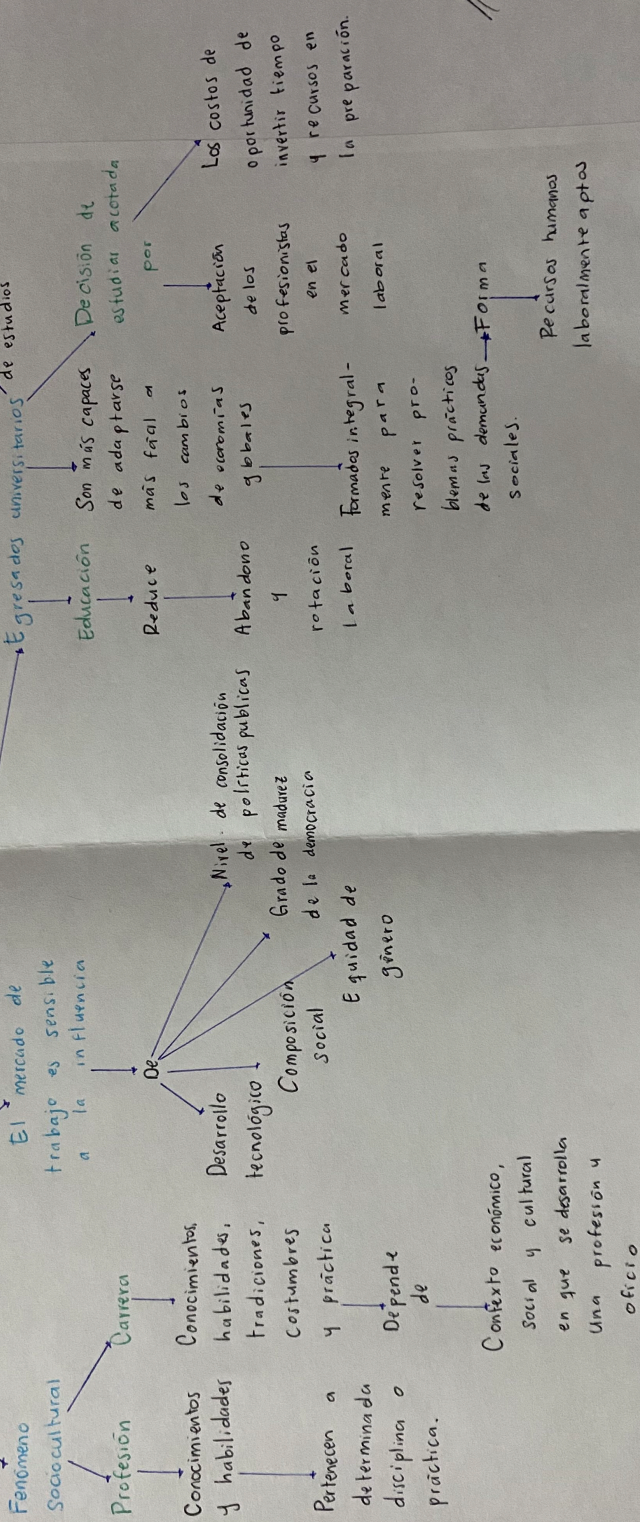 Fenómeno
Sociocultural
Profesión
Conocimientos
y habilidades
Pertenecen a
determinada
disciplina o
práctica.
Carrera
Conocimientos,
habilidades,
tradiciones,
costumbres
y práctica
Depende
de
Contexto económico,
social y cultural
en que se desarrolla
una profesión y
oficio
El mercado de
trabajo es sensible
a la influencia
De
Desarrollo
tecnológico
Composición
social
Equidad de
género
Grado de madurez
de la democracia
Nivel de consolidación
de políticas publicas
Egresados universitarios
Educación
Reduce
Abandono
y
rotación
laboral
Son más capaces
de adaptarse
más fácil a
los cambios
de economías
globales
Formados integral-
mente para
resolver pro-
blemas prácticos
de las demandas
sociales.
Forma
Recursos humanos
laboralmente aptos
de estudios
Decisión de
estudiar acotada
por
Aceptación
de los
profesionistas
en el
mercado
laboral
Los costos de
oportunidad de
invertir tiempo
y recursos en
la preparación.